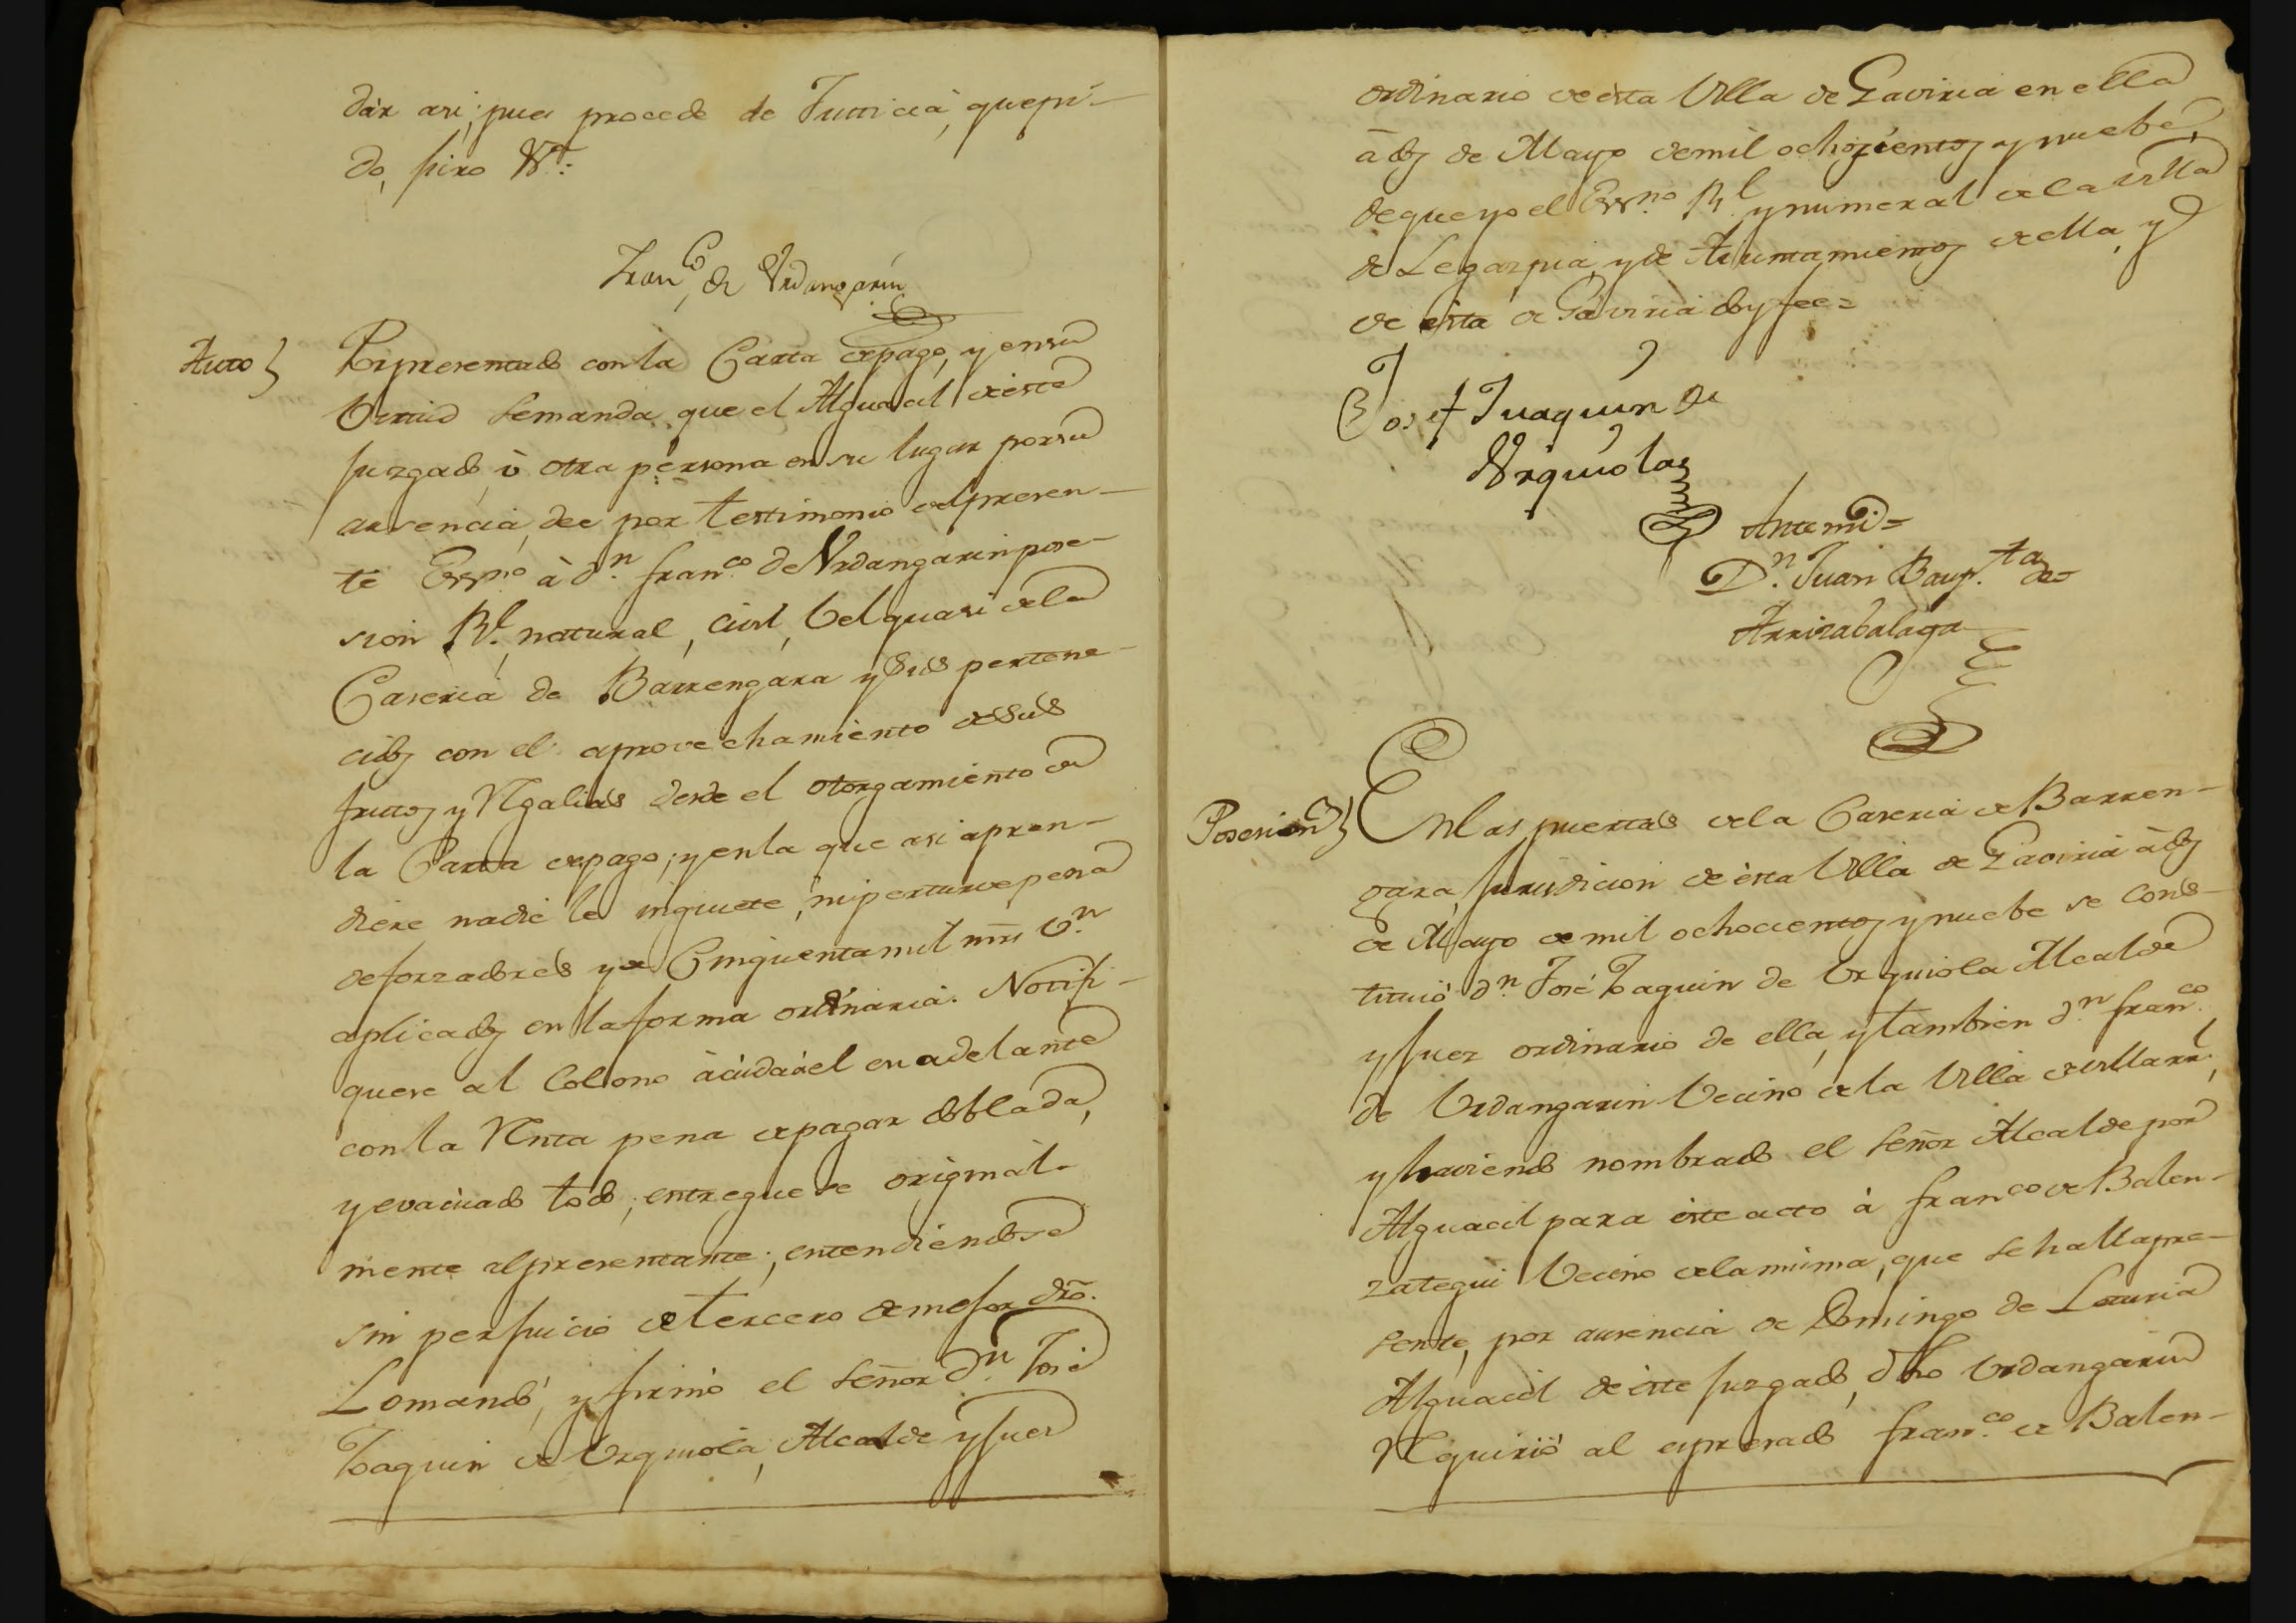 dár asi; pues procede de Justicia, que pi-
do, juro V.ª:
Fran.co de Urdangarin
Auto} Por presentado con la Carta de pago, y en su
Virtud se manda que el Alguacil de este
Juzgado, ò otra persona en su lugar por su
ausencia, dee por testimonio del presen-
te Essno à Dn. Franco. de Urdangarin pose-
sion Rl. natural, Civil, Vel quasi de la
Caseria de Barrengara y sus pertene-
cidos con el aprovechamiento de sus
frutos y Regalias desde el otorgamiento de
la Carta de pago; y en la que asi apren-
diere nadie le inquiete, ni perturve pena
de forzadores y de Cinquenta mil mrs. Vn
aplicados en la forma ordinaria. Notifi-
quese al Colono àcuda à el en adelante
con la Renta pena de pagar doblada,
y evacuado todo, entreguese original-
mente al presentante; entendiendose
sin perjuicio de tercero de mejor dro.
Lo mandó, y firmó el Señor Dn. José
Joaquin de Urquiola, Alcalde y Juez
ordinario de ésta Villa de Gaviria en ella
à dos de Mayo de mil ochozientos y nuebe,
de que yo el Essno Rl. y numeral de la villa
de Legazpia, y de Aiuntamientos de ella, y
de ésta de Gaviria doy fee=
Josef Juaquin de
Urquiola
Ante mi=
Dn. Juan Baup.ta de
Arrizabalaga
Posesion} En las puertas de la Caseria de Barren-
gara, Jurisdicion de ésta Villa de Gaviria à dos
de Mayo de mil ochocientos y nuebe se cons-
tituió Dn. José Joaquin de Urquiola Alcalde
y Juez ordinario de ella, y tambien Dn. Franco.
de Urdangarin Vecino de la Villa de Villarrl.,
y haviendo nombrado el Señor Alcalde por
Alguacil para este acto à Franco de Balen-
zategui Vecino de la misma, que se halla pre-
sente, por ausencia de Domingo de Loturia
Alguacil de este Juzgado, dho Urdangarin
Requirió al expresado Franco. de Balen-